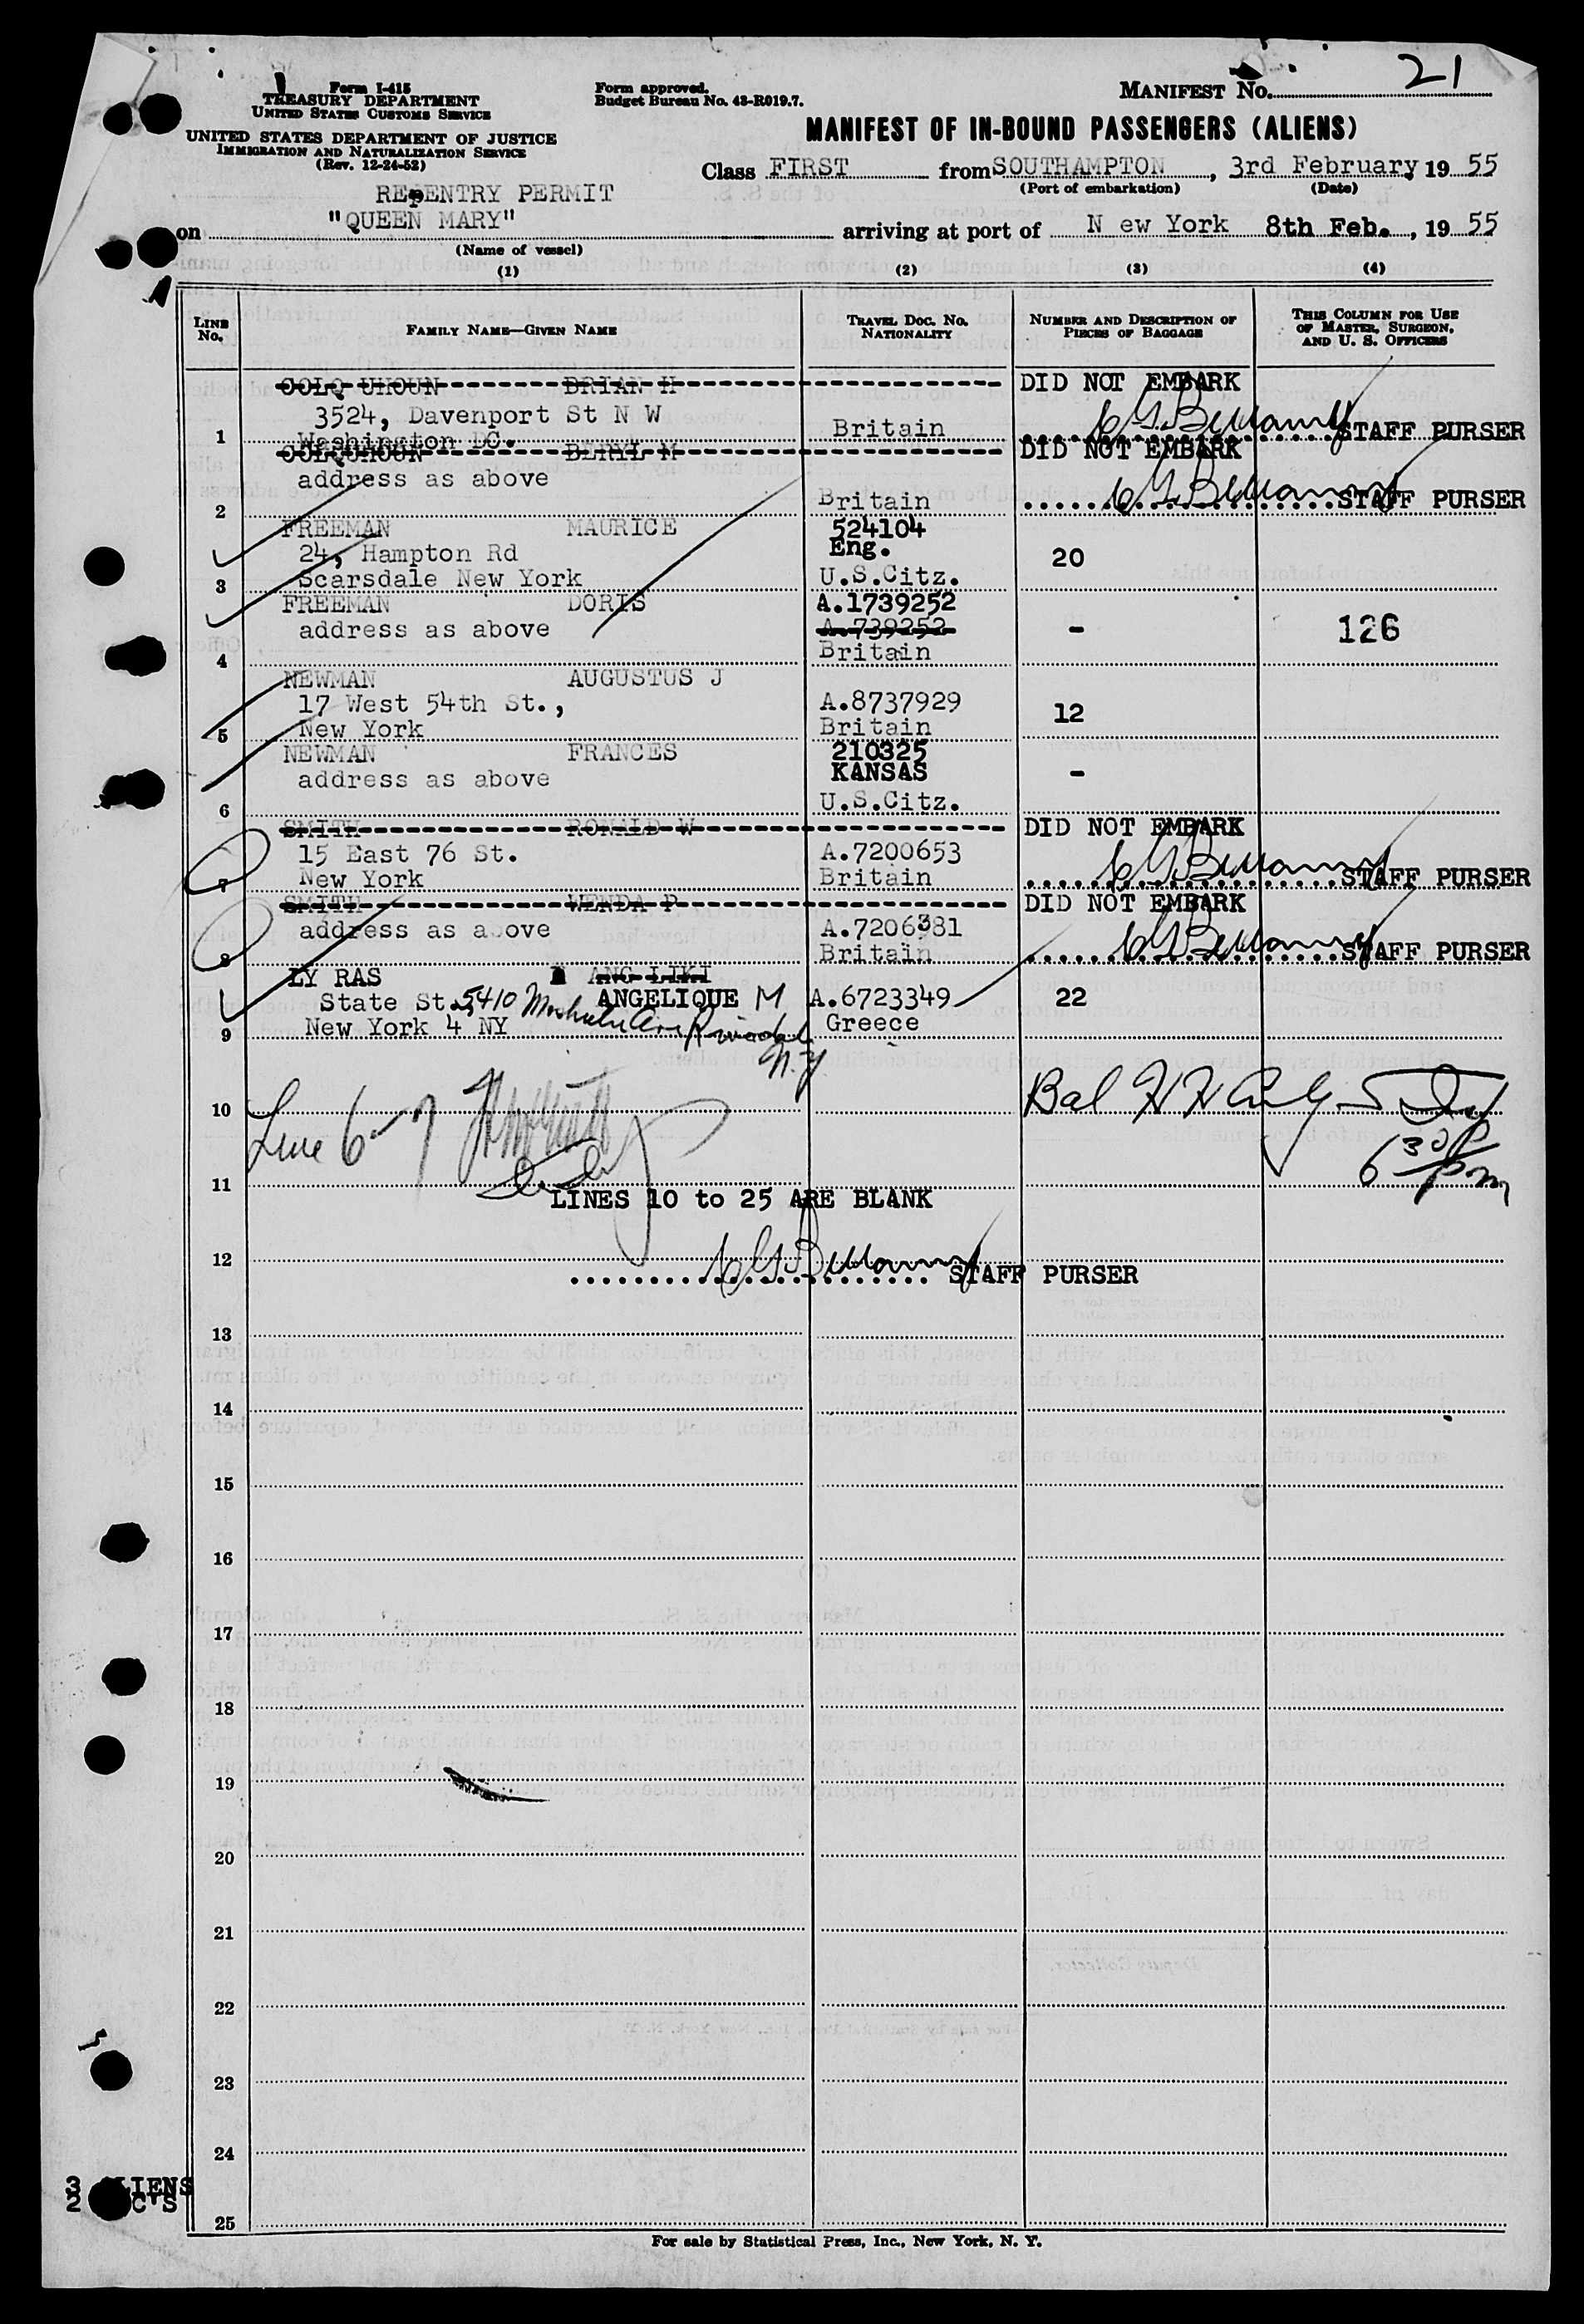 Form I-415
TREASURY DEPARTMENT
UNITED STATES CUSTOMS SERVICE
UNITED STATES DEPARTMENT OF JUSTICE
IMMIGRATION AND NATURALIZATION SERVICE
(Rev. 12-24-52)
Form approved.
Budget Bureau No. 43-R019.7.
MANIFEST No. 21
MANIFEST OF IN-BOUND PASSENGERS (ALIENS)
Class FIRST from SOUTHAMPTON, 3rd February, 19 55
(Port of embarkation) (Date)
RE-ENTRY PERMIT
on "QUEEN MARY" arriving at port of N ew York 8th Feb., 19 55
(Name of vessel)
(1) (2) (3) (4)
LINE No. FAMILY NAME—GIVEN NAME TRAVEL DOC. NO. NATIONALITY NUMBER AND DESCRIPTION OF PIECES OF BAGGAGE THIS COLUMN FOR USE OF MASTER, SURGEON, AND U. S. OFFICERS
COLQ UHOUN BRIAN H DID NOT EMBARK
3524, Davenport St N W
1 Washington DC. Britain STAFF PURSER
COLQUHOUN BERYL M DID NOT EMBARK
address as above
2 Britain STAFF PURSER
FREEMAN MAURICE 524104
24, Hampton Rd Eng. 20
3 Scarsdale New York U.S.Citz.
FREEMAN DORIS A.1739252
address as above A.739252 - 126
4 Britain
NEWMAN AUGUSTUS J
17 West 54th St., A.8737929 12
5 New York Britain
NEWMAN FRANCES 210325
address as above KANSAS -
6 U.S.Citz.
SMITH RONALD W DID NOT EMBARK
15 East 76 St. A.7200653
7 New York Britain STAFF PURSER
SMITH WENDA P DID NOT EMBARK
address as above A.7206381
8 Britain STAFF PURSER
LY RAS ANG LIKI
State St. 5410 ANGELIQUE M A.6723349 22
9 New York 4 NY Greece
N.Y
10 Bal
Line 6-7
6 30 pm
11
LINES 10 to 25 ARE BLANK
12
STAFF PURSER
13
14
15
16
17
18
19
20
21
22
23
24
3 ALIENS
25
For sale by Statistical Press, Inc., New York, N. Y.